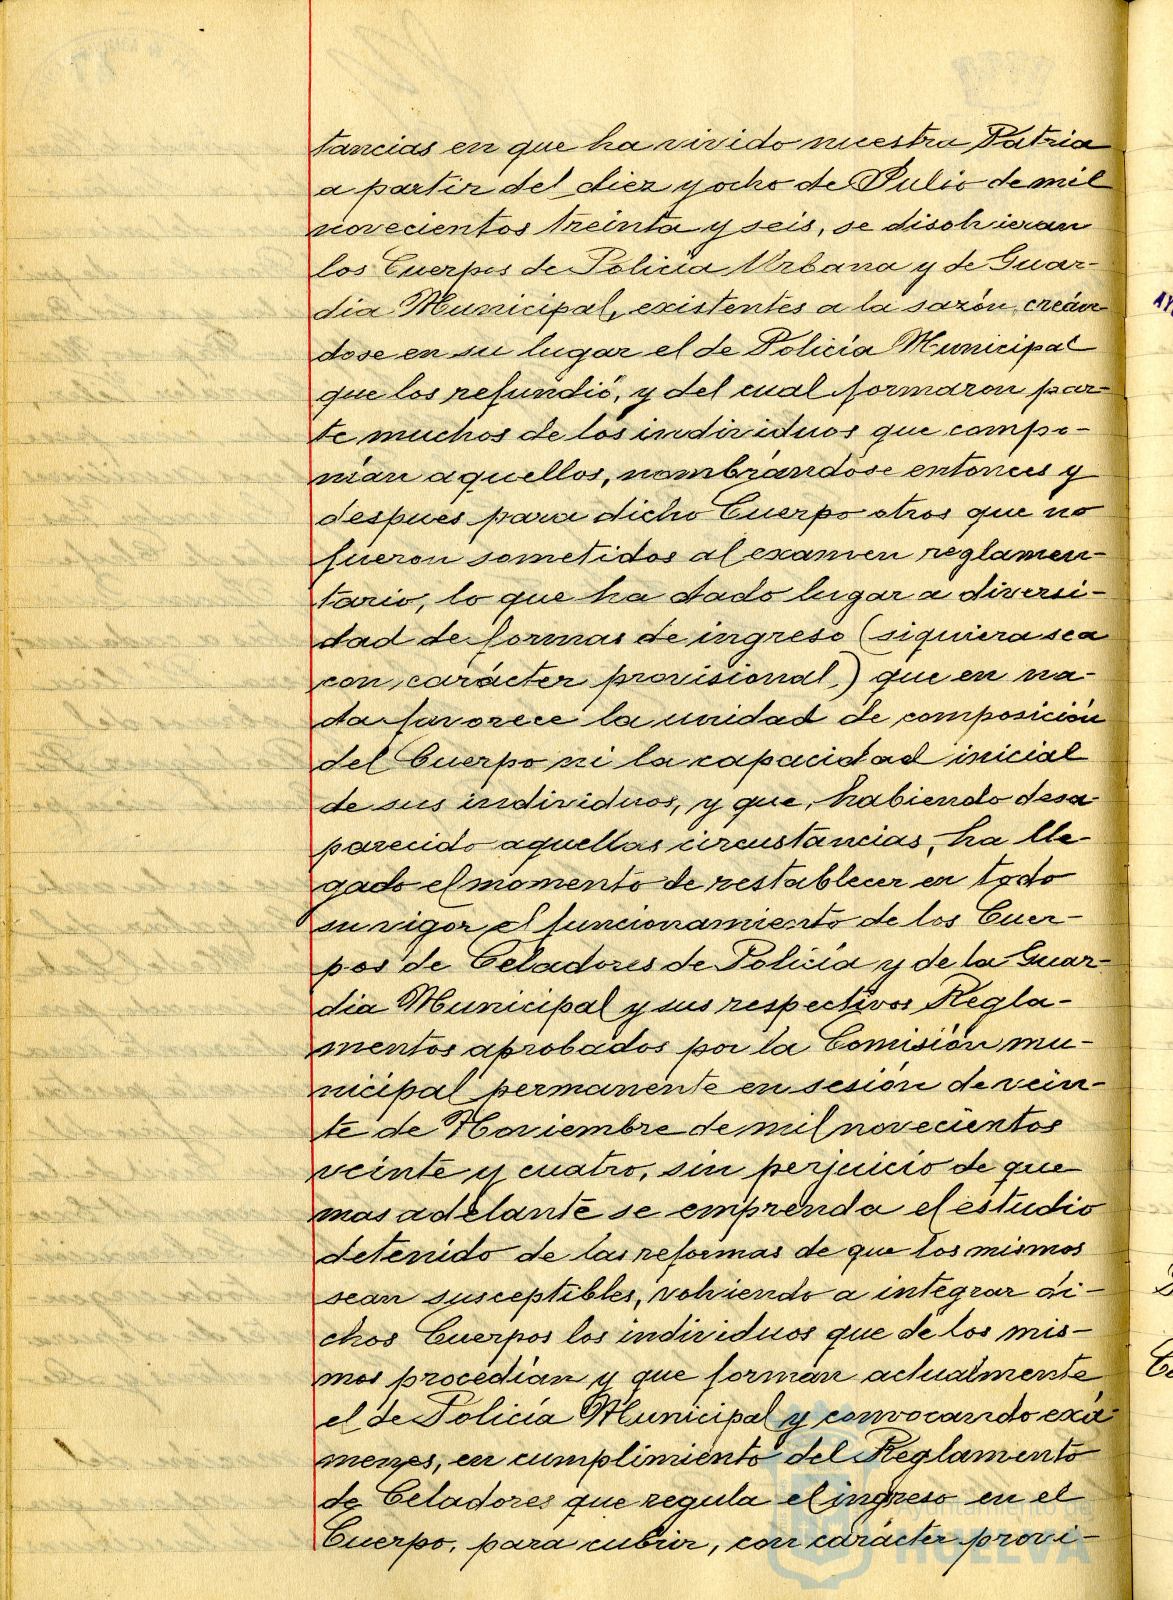 tancias en que ha vivido nuestra Patria
a partir del diez y ocho de Julio de mil
novecientos treinta y seis, se disolvieran
los Cuerpos de Policía Urbana y de Guar-
dia Municipal, existentes a la sazón, creán
dose en su lugar el de Policía Municipal
que los refundió, y del cual formaron par-
te muchos de los individuos que compo-
nían aquellos, nombrándose entonces y
despues para dicho Cuerpo otros que no
fueron sometidos al examen reglamen-
tario, lo que ha dado lugar a diversi-
dad de formas de ingreso (siquiera sea
con carácter provisional) que en na-
da favorece la unidad de composición
del Cuerpo ni la capacidad inicial
de sus individuos, y que, habiendo desa
parecido aquellas circustancias, ha lle
gado el momento de restablecer en todo
su vigor el funcionamiento de los Cuer-
pos de Celadores de Policía y de la Guar-
dia Municipal y sus respectivos Regla-
mentos aprobados por la Comisión mu-
nicipal permanente en sesión de vein-
te de Noviembre de mil novecientos
veinte y cuatro, sin perjuicio de que
mas adelante se emprenda el estudio
detenido de las reformas de que los mismos
sean susceptibles, volviendo a integrar di-
chos Cuerpos los individuos que de los mis-
mos procedían y que forman actualmente
el de Policía Municipal y convocando exá
menes, en cumplimiento del Reglamento
de Celadores que regula el ingreso en el
Cuerpo, para cubrir, con carácter provi-
Ayuntamiento de
HUELVA